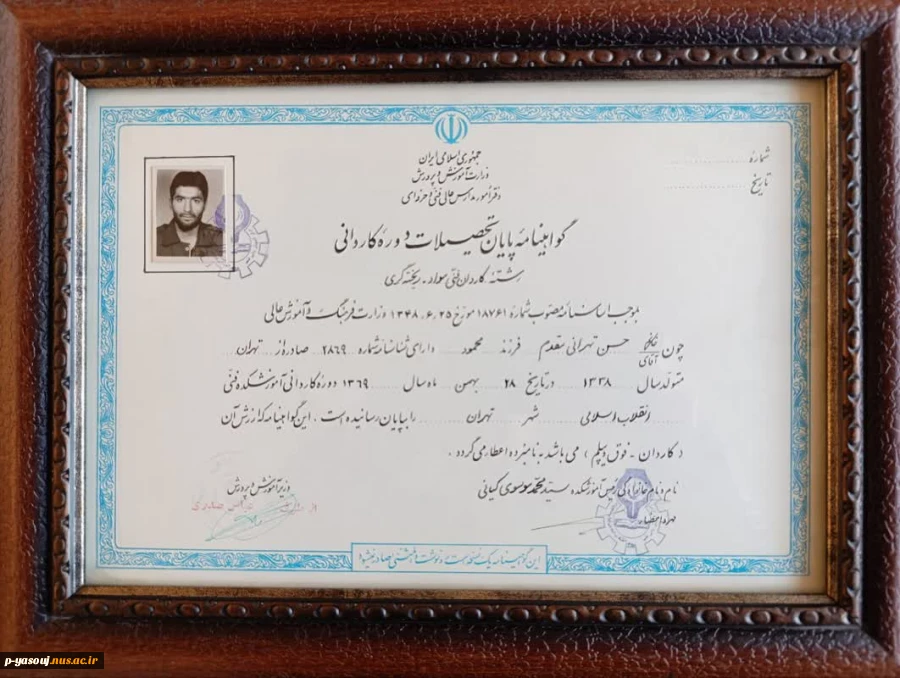 جمهوری اسلامی ایران
وزارت آموزش و پرورش
دفتر امور مدارس عالی فنی و حرفه‌ای
شماره
تاریخ
گواهینامهٔ پایان تحصیلات دورهٔ کاردانی
رشتهٔ کاردان فنی مواد - ریخته‌گری
بموجب اساسنامه مصوب شمارهٔ ۱۸۷۶۱ مورخ ۱۳۴۸.۶.۲۵ وزارت فرهنگ و آموزش عالی
چون آقای حسن تهرانی مقدم فرزند محمود دارای شناسنامه شماره ۲۸۶۹ صادره از تهران
متولد سال ۱۳۳۸ در تاریخ ۲۸ بهمن ماه سال ۱۳۶۹ دورهٔ کاردانی آموزشکده فنی
انقلاب اسلامی شهر تهران را بپایان رسانیده است . این گواهینامه که ارزش آن
( کاردان - فوق دیپلم ) می باشد به نامبرده اعطا می گردد .
نام و نام خانوادگی رئیس آموزشکده سید محمد موسوی کیانی
مهر و امضاء
وزیر آموزش و پرورش
از طرف عباس صدری
این گواهینامه یک نسخه است و رونوشت المثنی صادر نمیشود
p-yasouj.nus.ac.ir